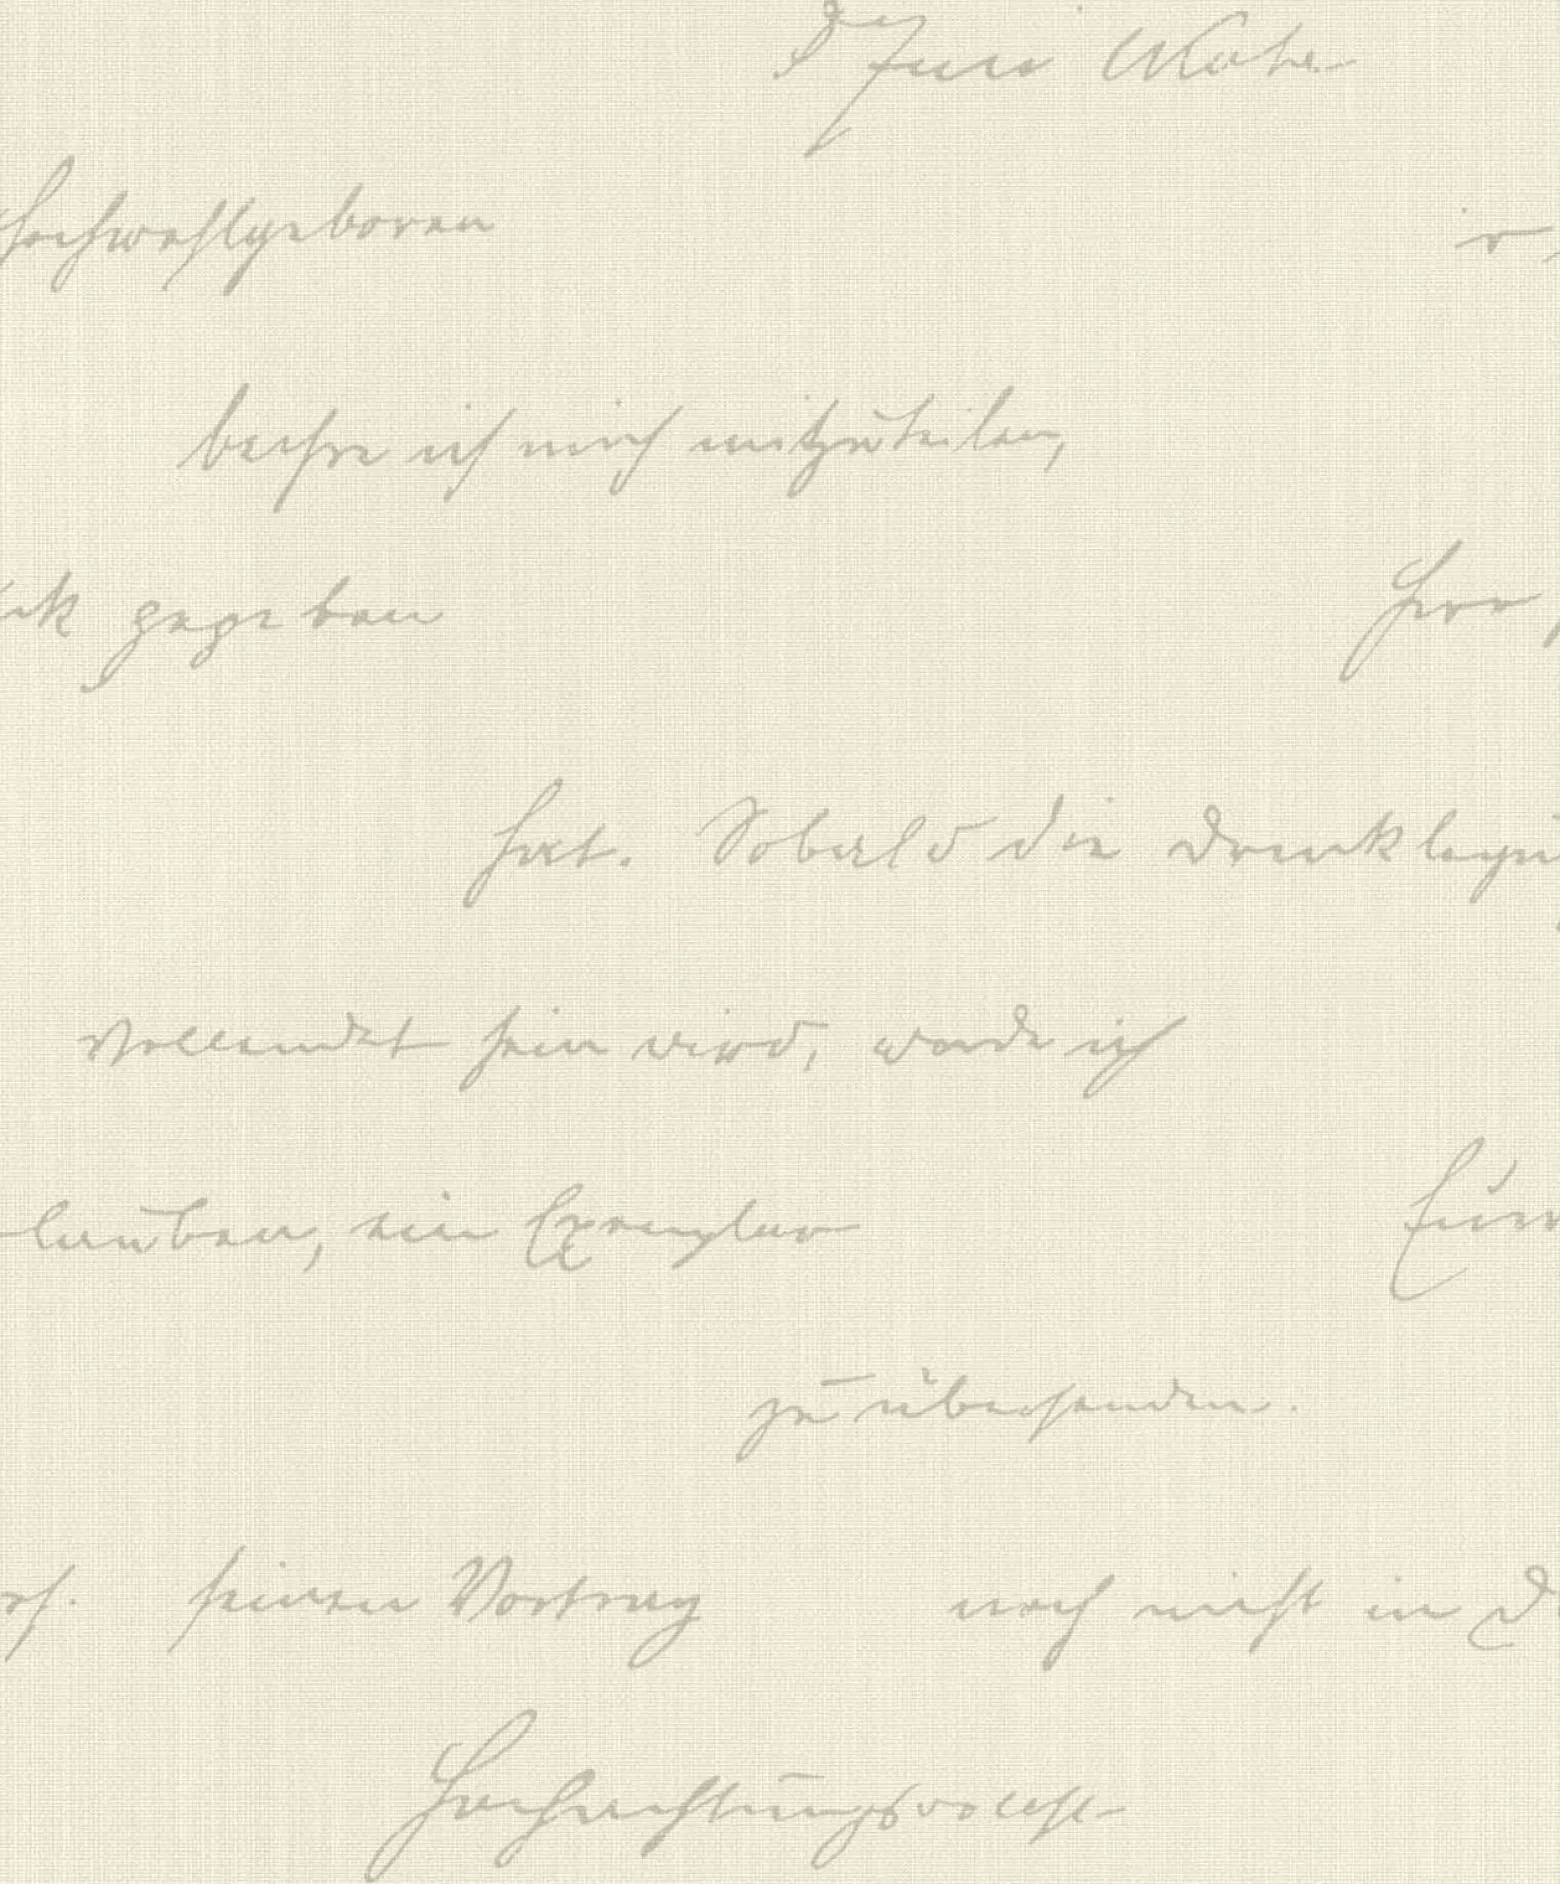 Hochwohlgeboren
beehre ich mich mitzuteilen,
gegeben Herr
hat. Sobald die Drucklegu
vollendet sein wird, werde ich
lauben, ein Exemplar Eur
zu übersenden.
seinen Vortrag noch nicht in D
Hochachtungsvollst